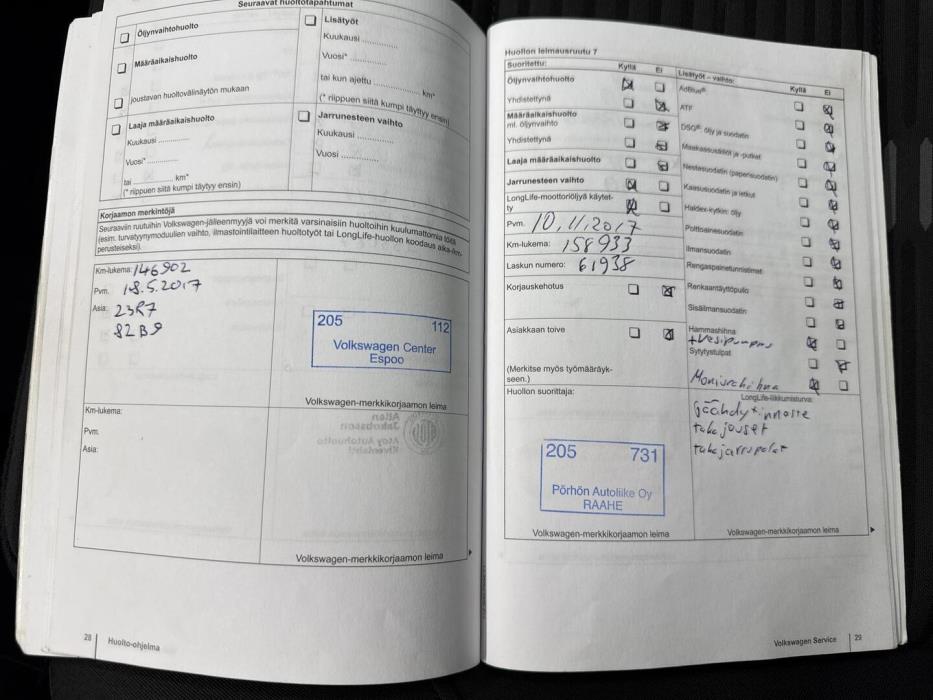 Seuraavat huoltotapahtumat
Öljynvaihtohuolto
Määräaikaishuolto
joustavan huoltovälinäytön mukaan
Laaja määräaikaishuolto
Kuukausi ..............
Vuosi* ..............
tai .............. km*
(* riippuen siitä kumpi täytyy ensin)
Lisätyöt
Kuukausi ..............
Vuosi* ..............
tai kun ajettu .............. km*
(* riippuen siitä kumpi täytyy ensin)
Jarrunesteen vaihto
Kuukausi ..............
Vuosi ..............
Korjaamon merkintöjä
Seuraaviin ruutuihin Volkswagen-jälleenmyyjä voi merkitä varsinaisiin huoltoihin kuulumattomia töitä
(esim. turvatyynymoduulien vaihto, ilmastointilaitteen huoltotyöt tai LongLife-huollon koodaus aika-/km-
perusteiseksi).
Km-lukema: 146902
Pvm. 18.5.2017
Asia: 23R7
82B9
205 112
Volkswagen Center
Espoo
Volkswagen-merkkikorjaamon leima
Km-lukema:
Pvm.
Asia:
Volkswagen-merkkikorjaamon leima
28 Huolto-ohjelma
Huollon leimausruutu 7
Suoritettu: Kyllä Ei
Öljynvaihtohuolto
Yhdistettynä
Määräaikaishuolto
ml. öljynvaihto
Yhdistettynä
Laaja määräaikaishuolto
Jarrunesteen vaihto
LongLife-moottoriöljyä käytet-
ty
Pvm. 10.11.2017
Km-lukema: 158933
Laskun numero: 61938
Korjauskehotus
Asiakkaan toive
(Merkitse myös työmääräyk-
seen.)
Huollon suorittaja:
205 731
Pörhön Autoliike Oy
RAAHE
Volkswagen-merkkikorjaamon leima
Lisätyöt – vaihto: Kyllä Ei
AdBlue®
ATF
DSG® öljy ja suodatin
Maakaasusäiliöt ja -putket
Nestesuodatin (paperisuodatin)
Kaasusuodatin ja letkut
Haldex-kytkin: öljy
Polttoainesuodatin
Ilmansuodatin
Rengaspainetunnistimet
Renkaantäyttöpullo
Sisäilmansuodatin
Hammashihna
+Vesipumppu
Sytytystulpat
Moniurahihna
LongLife-liikkumisturva:
Jäähdytinneste
takajouset
takajarrupalat
Volkswagen-merkkikorjaamon leima
Volkswagen Service 29